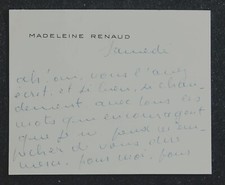 MADELEINE RENAUD
Samedi
ah! oui, vous l'avez
écrit, et si bien, si chau-
dement avec tous les
mots qui encouragent
que je ne peux m'em-
pêcher de vous dire
merci. Pour moi, pour